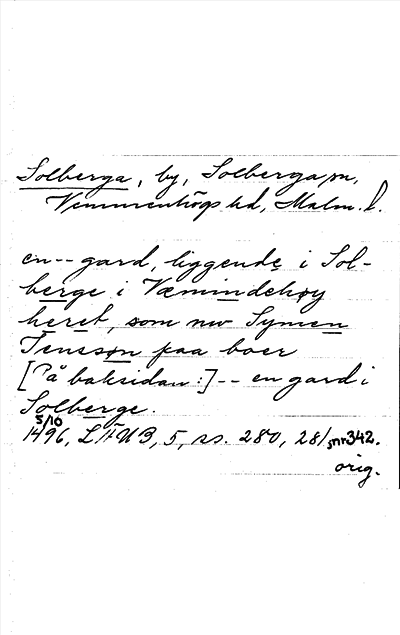 Solberga, by, Solberga sn,
Vemmenhögs hd, Malm. l.
en-- gard, liggende i Sol-
berge i Væmindehøy
heret, som nw Symen
Jenssøn paa boer
[På baksidan:]-- en gard i
Solberge.
5/10
1496, LÄUB, 5, ss. 280, 281, nr 342.
orig.